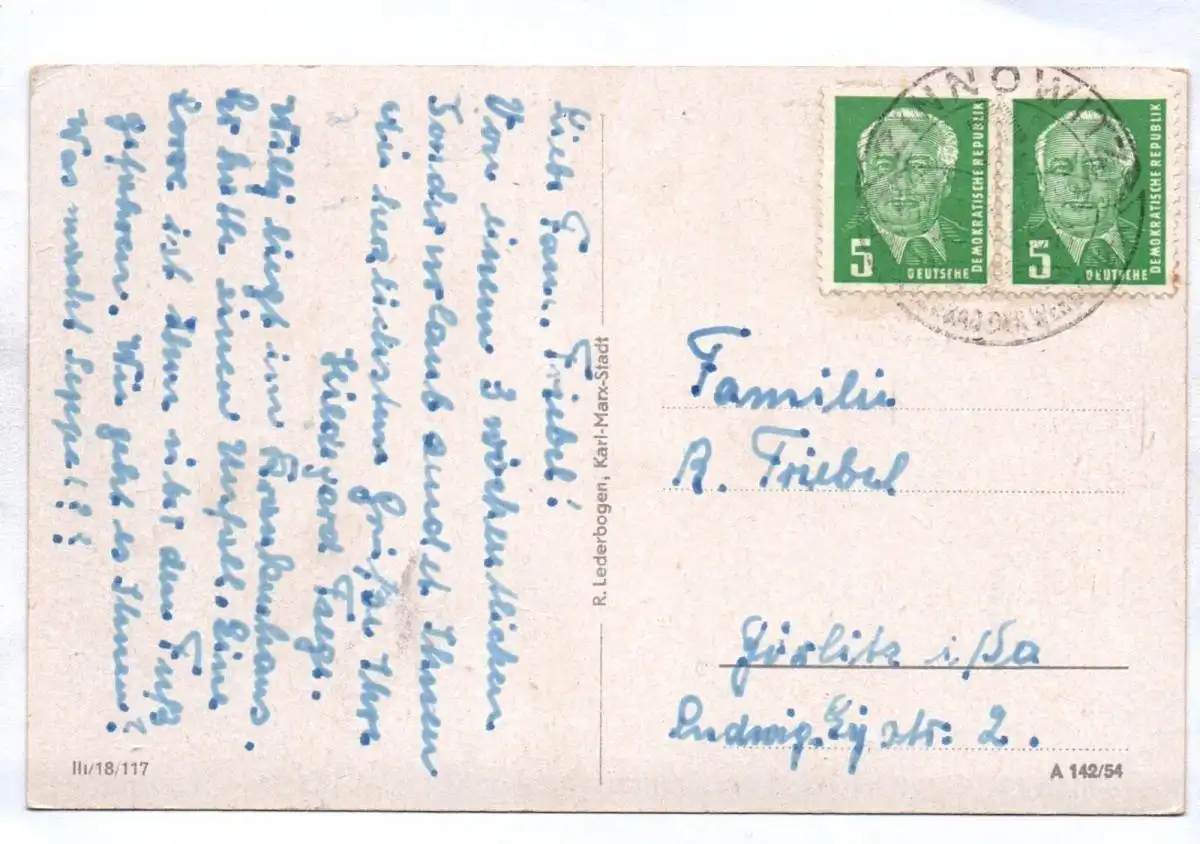 Liebe Fam. Triebel!
Von einem 3 wöchentlichen
Sonderurlaub sendet Ihnen
die herzlichsten Grüße Ihre
Hildegard
Willy liegt im Krankenhaus.
Er hatte einen Unfall. Eine
Lore ist ihm über den Fuß
gefahren. Wie geht es Ihnen?
Was macht Seppel??
R. Lederbogen, Karl-Marx-Stadt
III/18/117
5
DEUTSCHE
DEMOKRATISCHE REPUBLIK
5
DEUTSCHE
DEMOKRATISCHE REPUBLIK
Familie
R. Triebel
Görlitz i/Sa
str. 2.
A 142/54